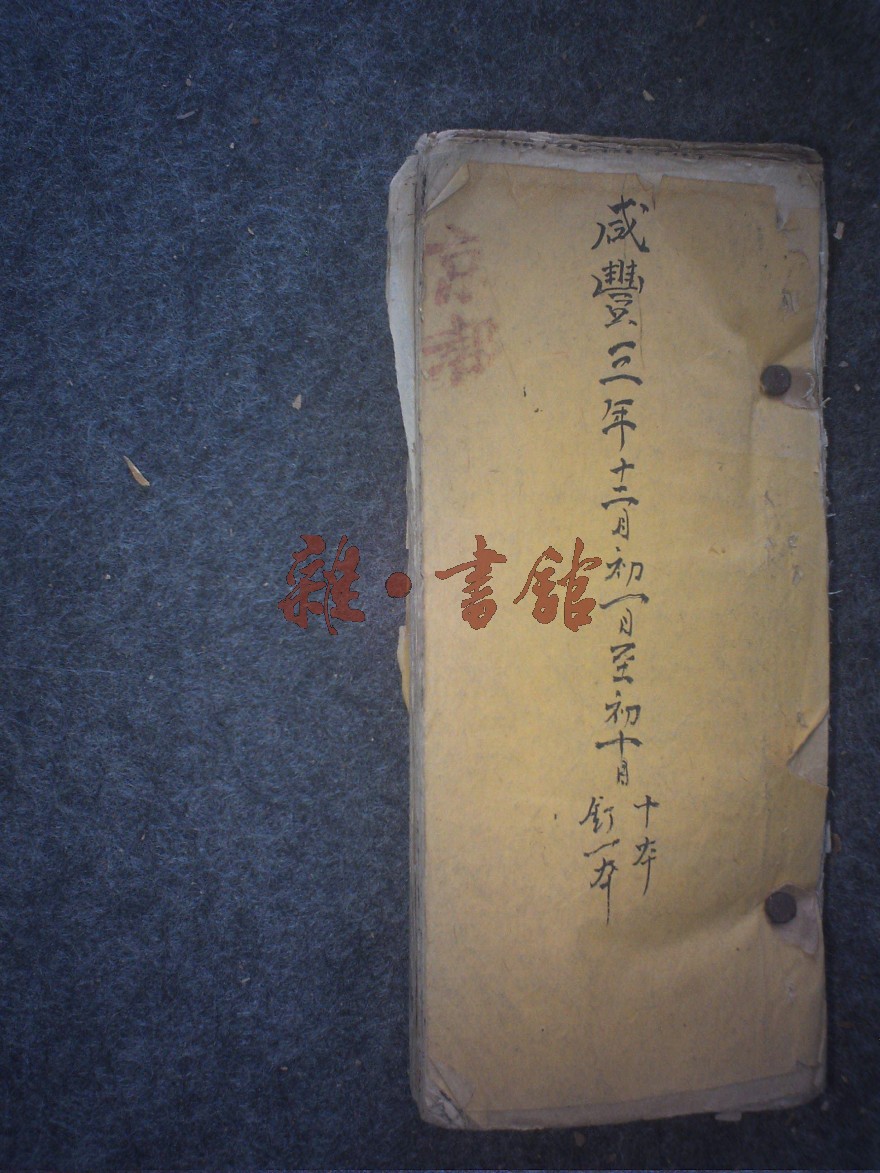 咸豐三年十二月初一日至初十日
十本
釘一本
京
雜·書館